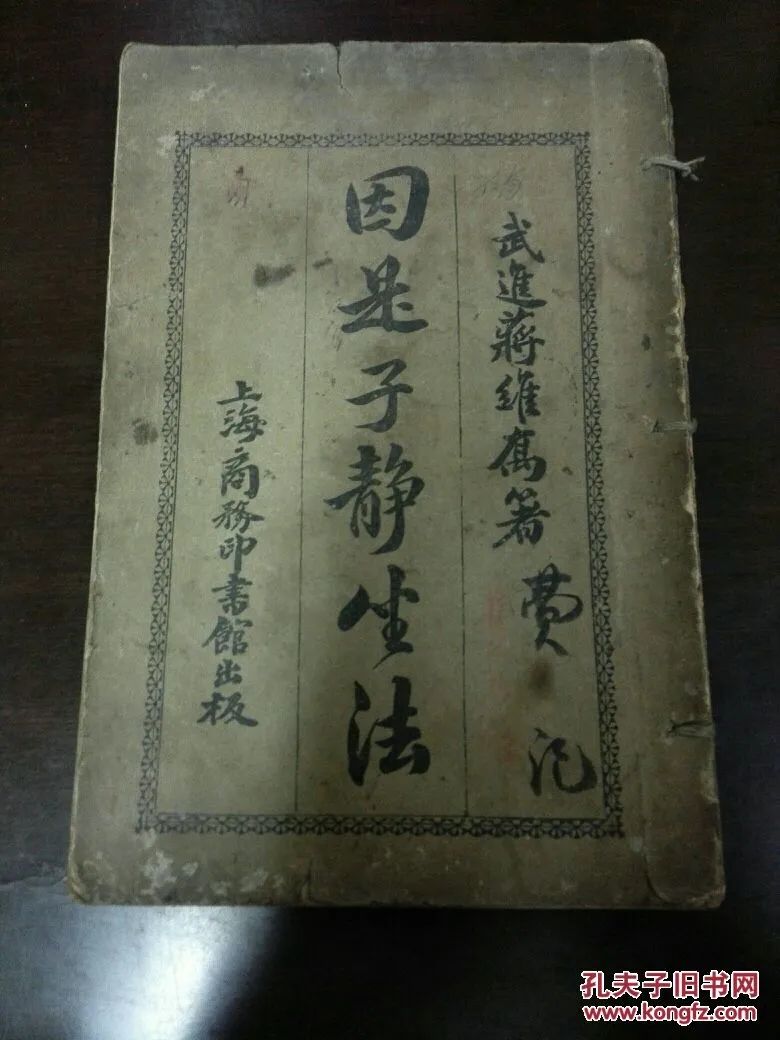 武進蔣維喬著
費
因是子静坐法
上海商務印書館出板
孔夫子旧书网
www.kongfz.com